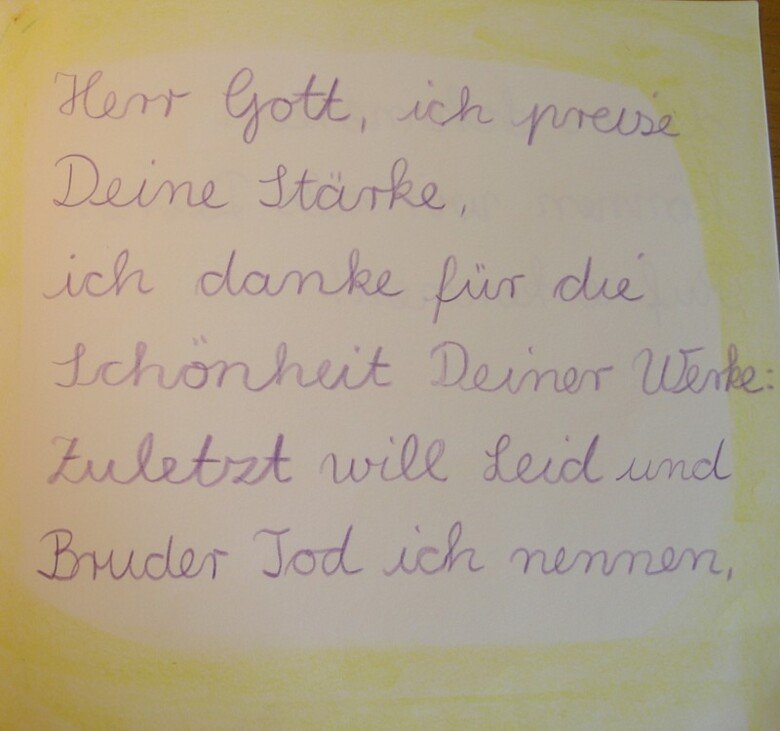 Herr Gott, ich preise
Deine Stärke,
ich danke für die
Schönheit Deiner Werke:
Zuletzt will Leid und
Bruder Tod ich nennen,